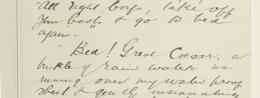 "All right boys, take off
your boots & go to bed
again.
"Bed! Great Caesar, a
bucket of rain water is
running over my water proof
sheet & gently insinuating